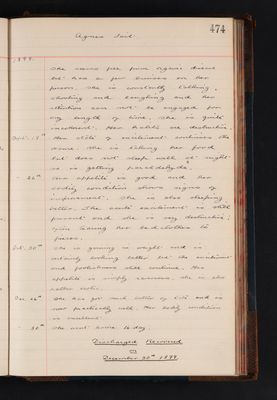 474
Agnes
1899.
She seems free from organic disease
but has a few bruises on her
person. She is constantly talking,
shouting and laughing and her
attention can not be engaged for
any length of time. She is quite
incoherent. Her habits are destructive.
Sept. Her state of excitement continues the
same. She is taking her food
but does not sleep well at night
so is getting paraldehyde.
Her appetite is good and her
bodily condition shows signs of
improvement. She is also sleeping
better. The excitement is still
present and she is very destructive;
often tearing her bedclothes to
pieces.
Oct. 30th She is gaining in weight and is
certainly looking better but the excitement
and foolishness still continue. Her
appetite is simply enormous. She is also
rather
Dec. She has got much better of late and is
now practically well. Her bodily condition
is excellent.
30th She went home to-day.
Discharged Recovered
on
December 30th 1899.